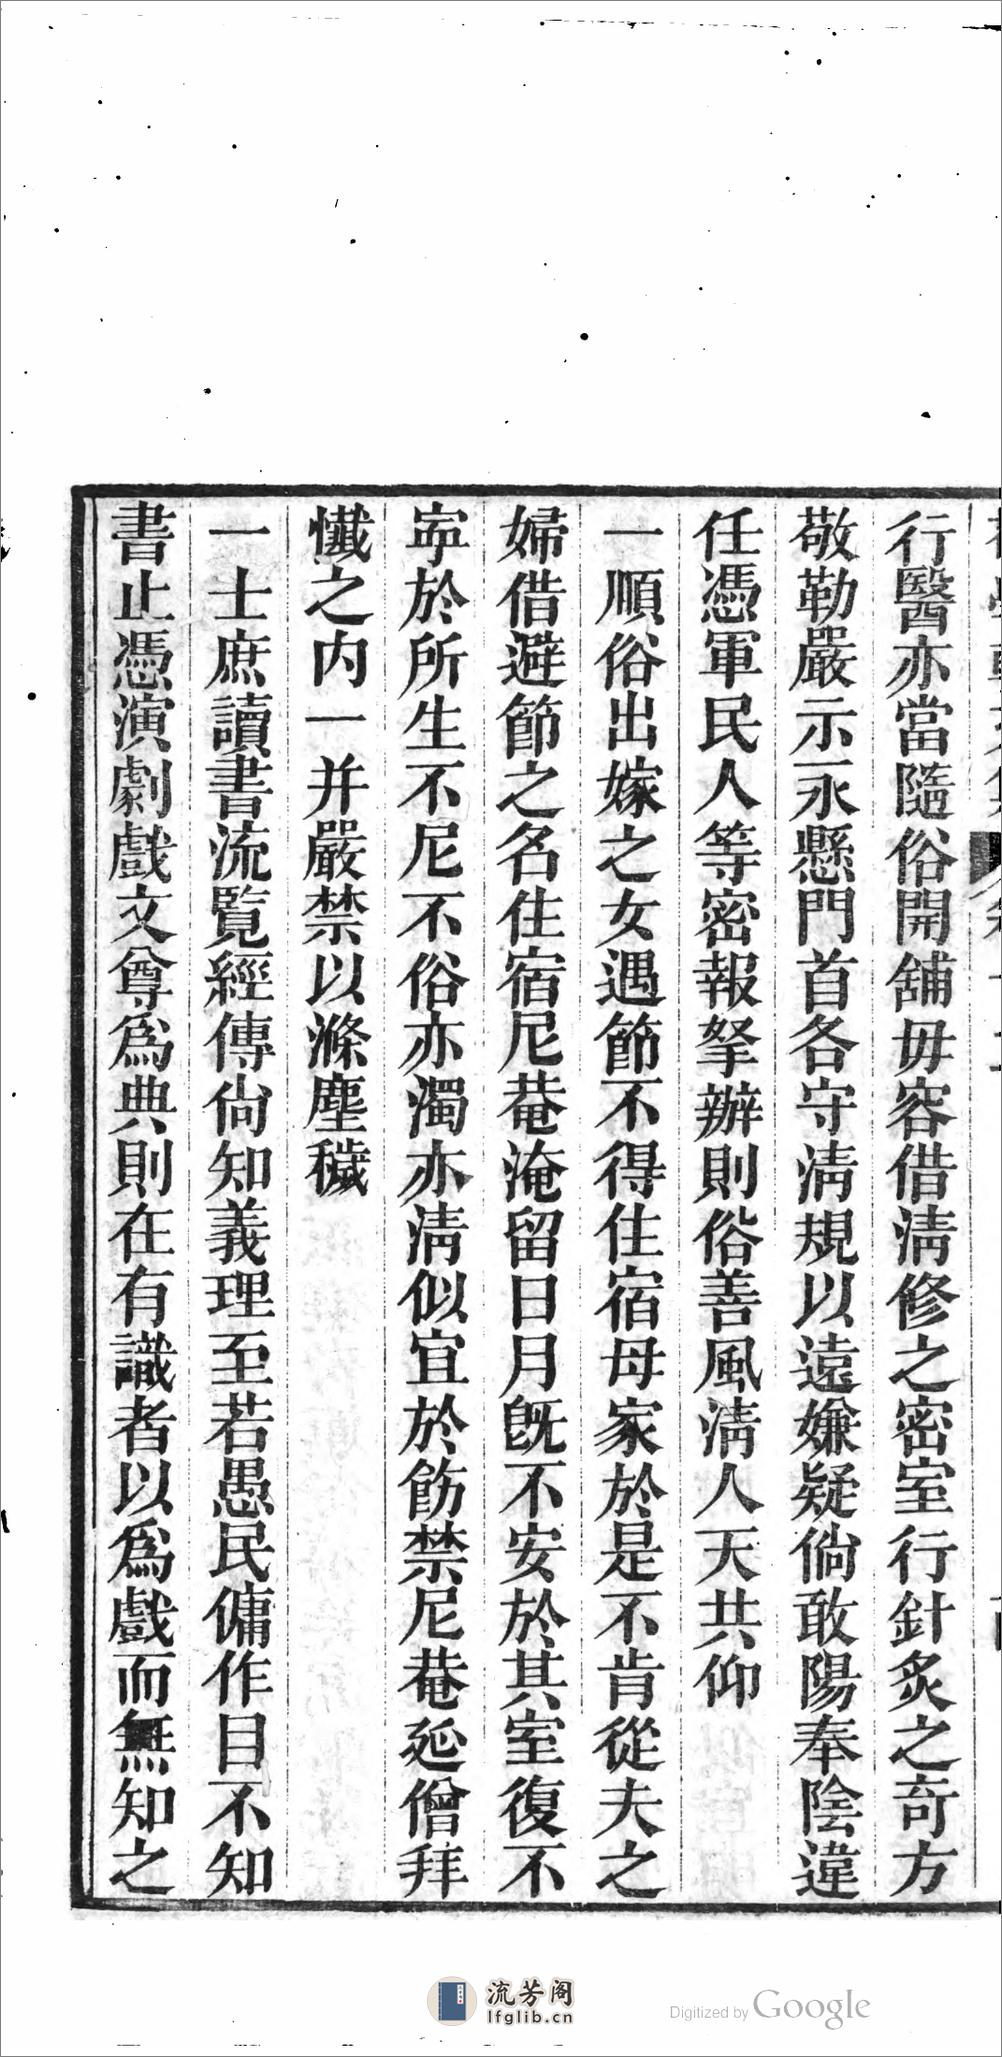 行醫亦當隨俗開舖毋容借淸修之密室行針炙之奇方
敬勒嚴示永懸門首各守淸規以遠嫌疑倘敢陽奉陰違
任憑軍民人等密報拏辦則俗善風淸人天共仰
一順俗出嫁之女遇節不得住宿母家於是不肯從夫之
婦借避節之名住宿尼菴淹留日月旣不安於其室復不
寕於所生不尼不俗亦濁亦淸似宜於飭禁尼菴延僧拜
懺之内一并嚴禁以滌塵穢
一士庶讀書流覽經傳尙知義理至若愚民傭作目不知
書止憑演劇戲文尊爲典則在有識者以爲戲而無知之
流芳阁
lfglib.cn
Digitized by Google